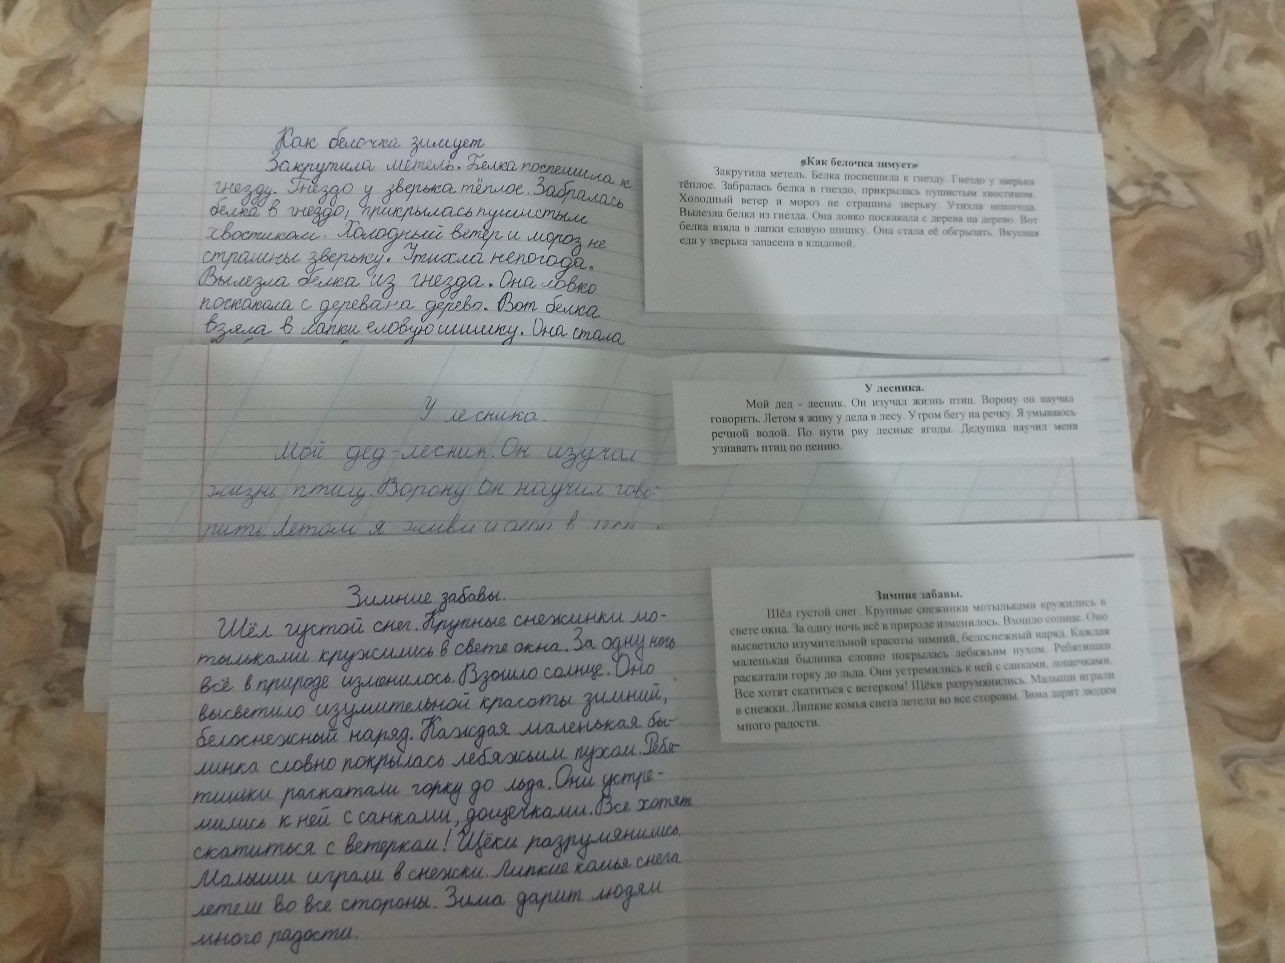 Как белочка зимует
Закрутила метель. Белка поспешила к
гнезду. Гнездо у зверька тёплое. Забралась
белка в гнездо, прикрылась пушистым
хвостиком. Холодный ветер и мороз не
страшны зверьку. Утихла непогода.
Вылезла белка из гнезда. Она ловко
поскакала с дерева на дерево. Вот белка
взяла в лапки еловую шишку. Она стала
«Как белочка зимует»
Закрутила метель. Белка поспешила к гнезду. Гнездо у зверька
тёплое. Забралась белка в гнездо, прикрылась пушистым хвостиком.
Холодный ветер и мороз не страшны зверьку. Утихла непогода.
Вылезла белка из гнезда. Она ловко поскакала с дерева на дерево. Вот
белка взяла в лапки еловую шишку. Она стала её обгрызать. Вкусная
еда у зверька запасена в кладовой.
У лесника.
Мой дед-лесник. Он изучал
жизнь птиц. Ворону он научил гово-
рить. Летом я живу в
У лесника.
Мой дед - лесник. Он изучал жизнь птиц. Ворону он научил
говорить. Летом я живу у деда в лесу. Утром бегу на речку. Я умываюсь
речной водой. По пути рву лесные ягоды. Дедушка научил меня
узнавать птиц по пению.
Зимние забавы.
Шёл густой снег. Крупные снежинки мо-
тыльками кружились в свете окна. За одну ночь
всё в природе изменилось. Взошло солнце. Оно
высветило изумительной красоты зимний,
белоснежный наряд. Каждая маленькая бы-
линка словно покрылась лебяжьим пухом. Ребя-
тишки раскатали горку до льда. Они устре-
мились к ней с санками, дощечками. Все хотят
скатиться с ветерком! Щёки разрумянились.
Малыши играли в снежки. Липкие комья снега
летели во все стороны. Зима дарит людям
много радости.
Зимние забавы.
Шёл густой снег. Крупные снежинки мотыльками кружились в
свете окна. За одну ночь всё в природе изменилось. Взошло солнце. Оно
высветило изумительной красоты зимний, белоснежный наряд. Каждая
маленькая былинка словно покрылась лебяжьим пухом. Ребятишки
раскатали горку до льда. Они устремились к ней с санками, дощечками.
Все хотят скатиться с ветерком! Щёки разрумянились. Малыши играли
в снежки. Липкие комья снега летели во все стороны. Зима дарит людям
много радости.